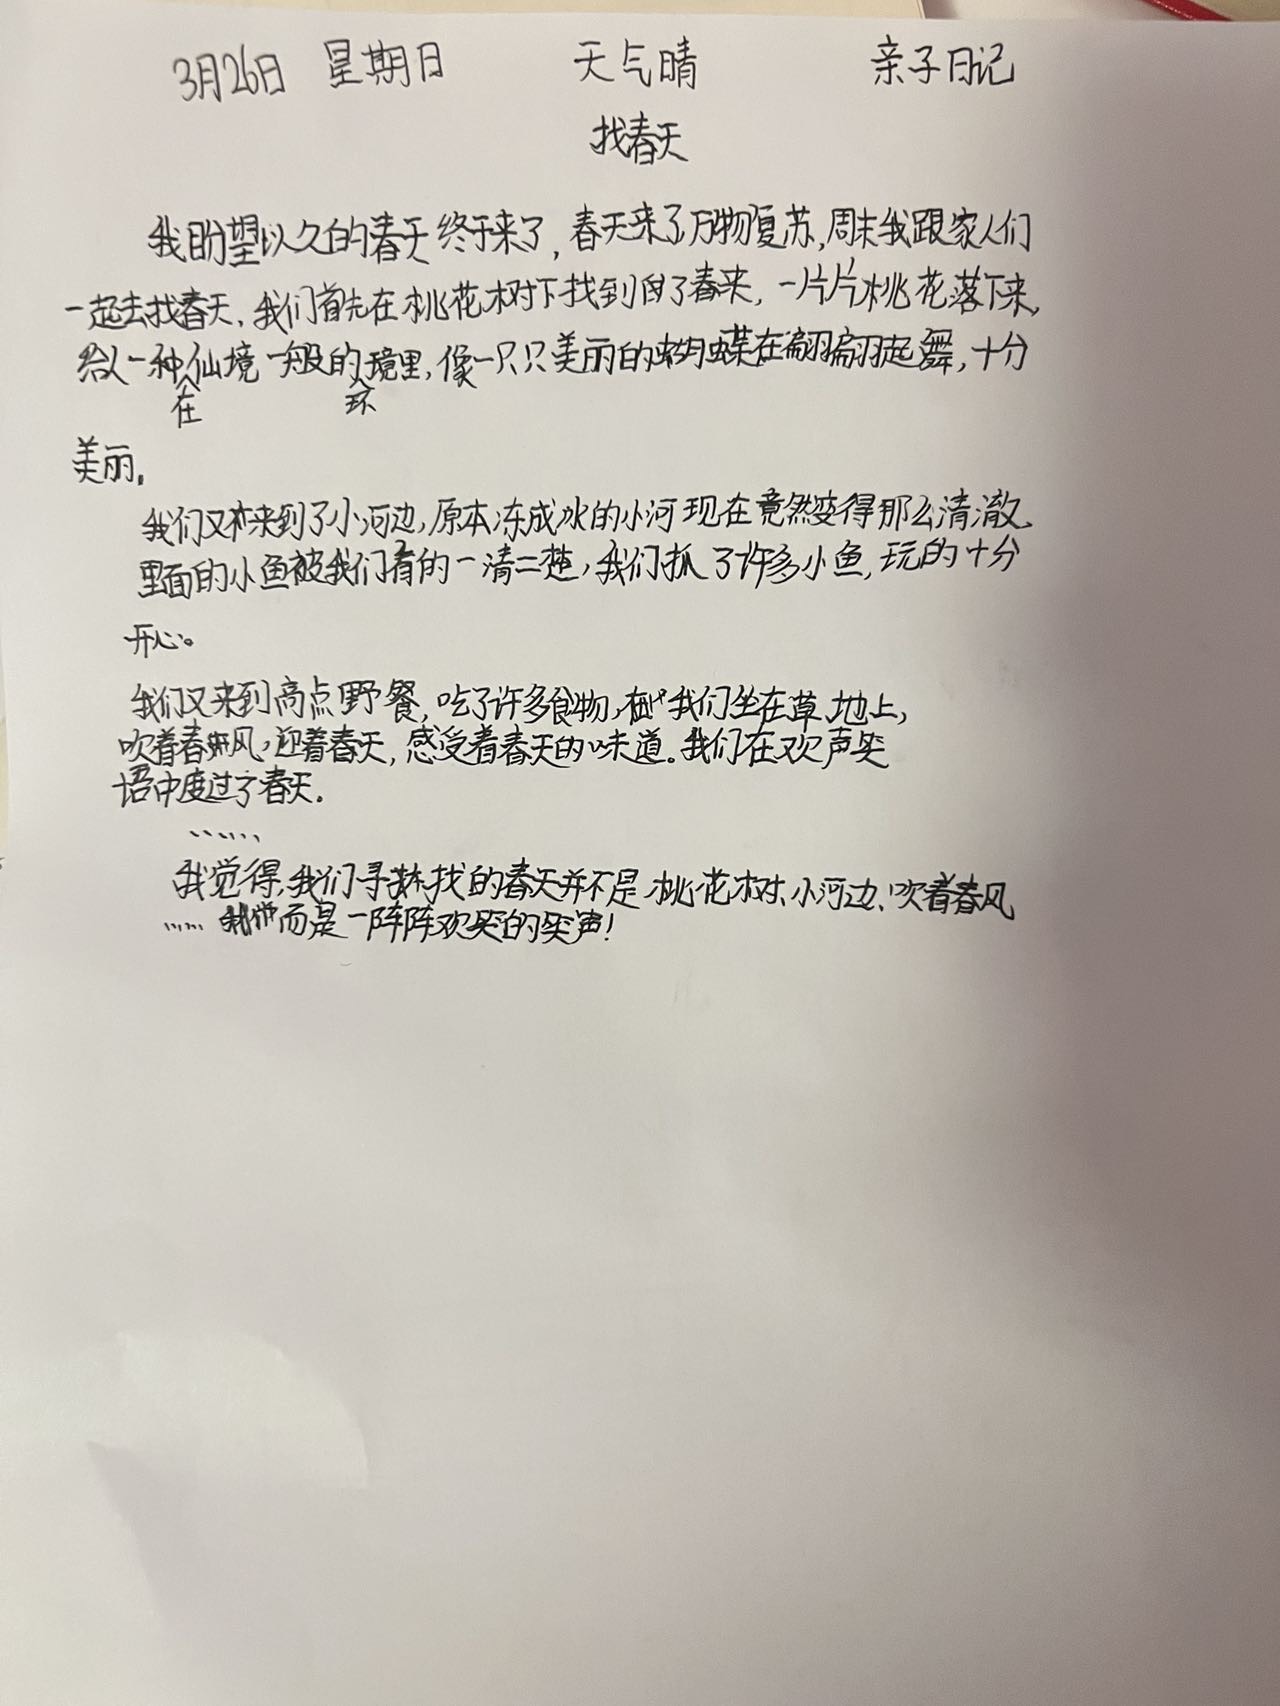 3月26日 星期日 天气晴 亲子日记
找春天
我盼望以久的春天终于来了，春天来了万物复苏，周末我跟家人们
一起去找春天，我们首先在桃花树下找到了春来，一片片桃花落下来，
给人一种在仙境一般的环境里，像一只只美丽的蝴蝶在翩翩起舞，十分
美丽。
我们又来到了小河边，原本冻成冰的小河现在竟然变得那么清澈，
里面的小鱼被我们看的一清二楚，我们抓了许多小鱼，玩的十分
开心。
我们又来到高点野餐，吃了许多食物，我们坐在草地上，
吹着春风，迎着春天，感受着春天的味道。我们在欢声笑
语中度过了春天。
......
我觉得，我们寻找的春天并不是桃花树、小河边、吹着春风
......而是一阵阵欢笑的笑声！